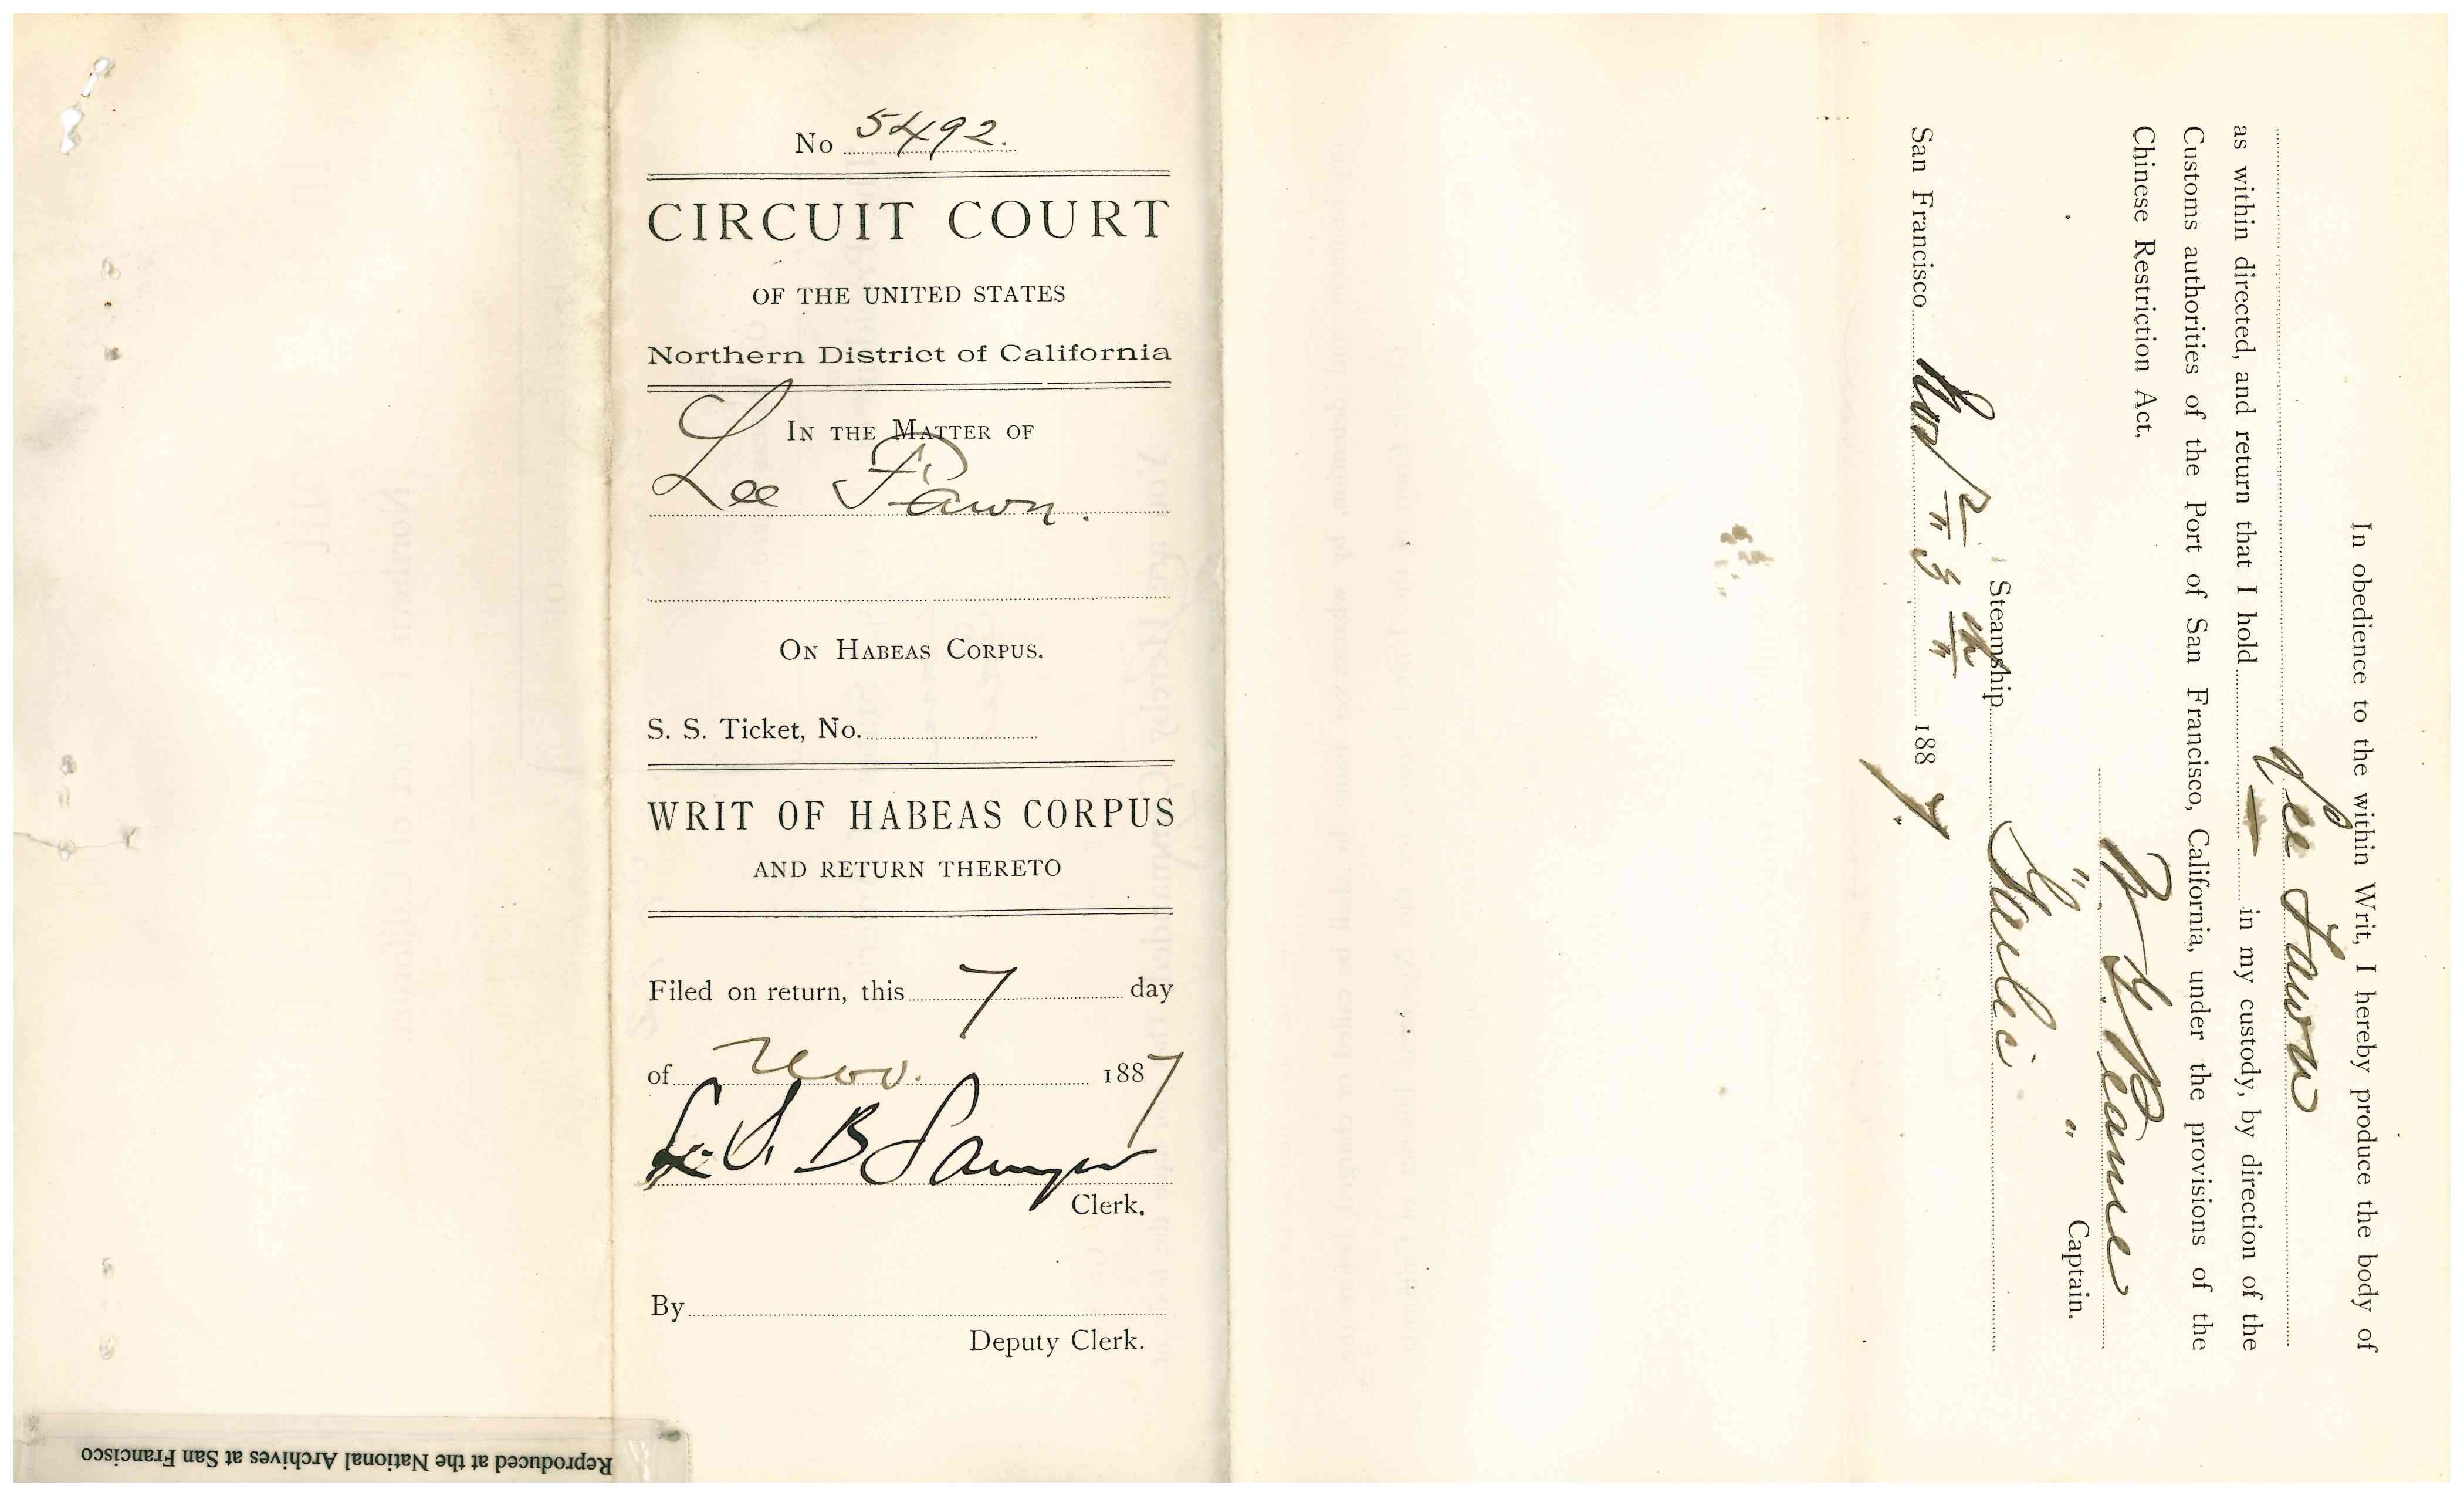 No 5492.
CIRCUIT COURT
OF THE UNITED STATES
Northern District of California
IN THE MATTER OF
Lee Fawn.
ON HABEAS CORPUS.
S. S. Ticket, No.
WRIT OF HABEAS CORPUS
AND RETURN THERETO
Filed on return, this 7 day
of Nov. 1887
L. S. B Sawyer
Clerk.
By
Deputy Clerk.
In obedience to the within Writ, I hereby produce the body of
Lee Fawn
as within directed, and return that I hold in my custody, by direction of the
Customs authorities of the Port of San Francisco, California, under the provisions of the
Chinese Restriction Act.
W G Pearne
" " Captain.
Steamship Gaelic
San Francisco 1887.
Reproduced at the National Archives at San Francisco